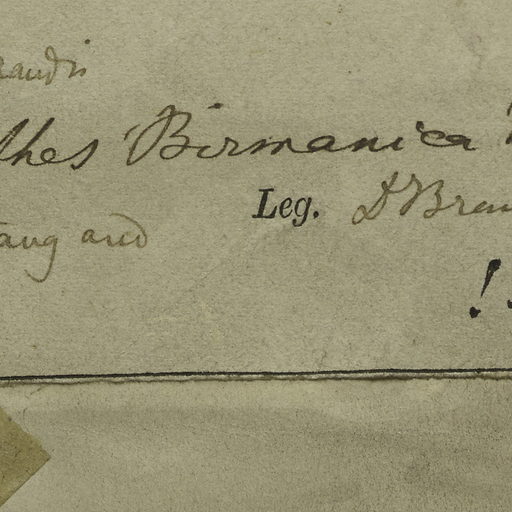 randis
thes Birmanica
Leg. D Bran
aug and
!